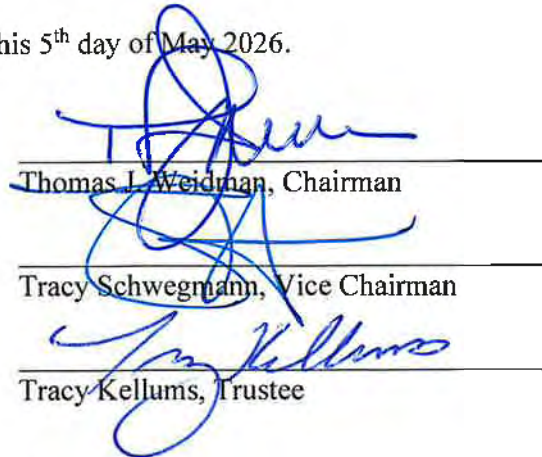 his 5th day of May 2026.
Thomas J. Weidman, Chairman
Tracy Schwegmann, Vice Chairman
Tracy Kellums
Tracy Kellums, Trustee